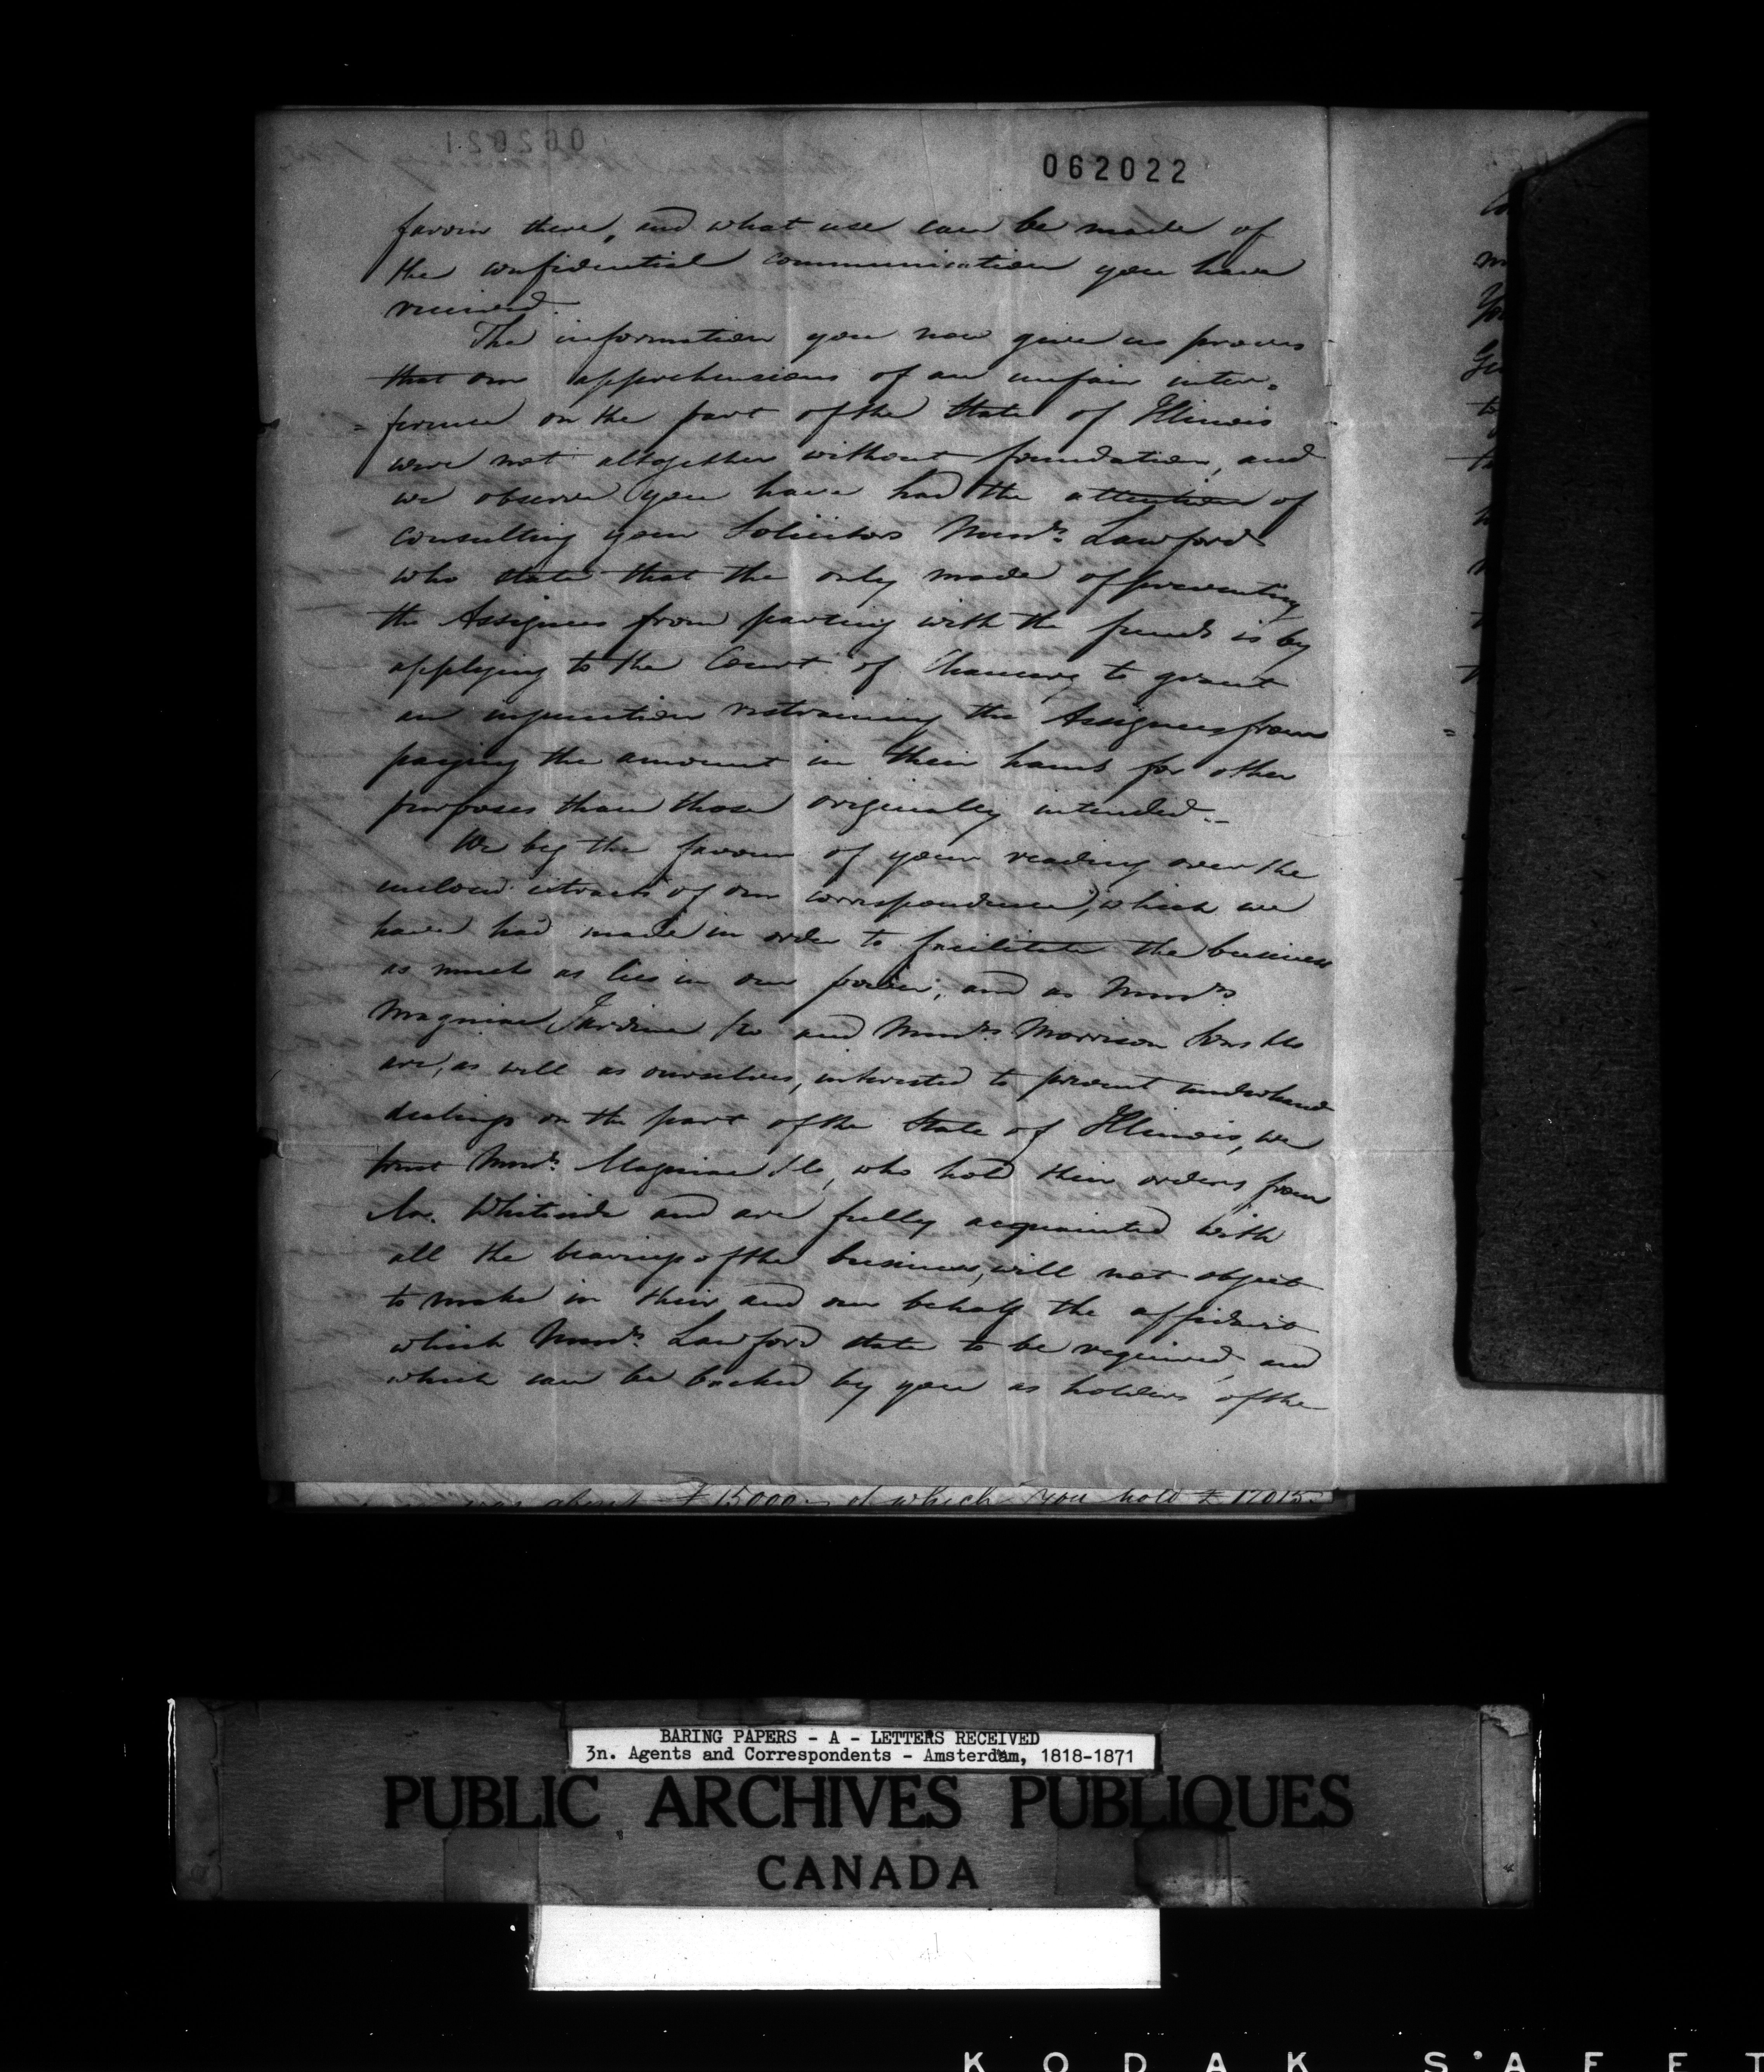 062022
favour there, and what use can be made of
the confidential communication you have
received.
The information you now give us proves
that our apprehensions of an unfair inter=
=ference on the part of the State of Illinois
were not altogether without foundation, and
we observe you have had the attention of
consulting your Solicitors Messrs. Lawford
who state that the only mode of preventing
the Assignees from parting with the funds is by
applying to the Court of Chancery to grant
an injunction restraining the Assignees from
paying the amount in their hands for other
purposes than those originally intended._
We beg the favour of your reading over the
inclosed extracts of our correspondence, which we
have had made in order to facilitate the business
as much as lies in our power; and as Messrs.
Magniac Jardine & Co and Messrs. Morrison Sons & Co
are, as well as ourselves, interested to prevent underhand
dealings on the part of the State of Illinois, we
trust Messrs. Magniac & Co, who hold their orders from
Mr. Whiteside and are fully acquainted with
all the bearings of the business, will not object
to make in their and our behalf the affidavit
which Messrs. Lawford state to be required, and
which can be backed by you as holders of the
about £15000 of which you hold £
BARING PAPERS - A - LETTERS RECEIVED
3n. Agents and Correspondents - Amsterdam, 1818-1871
PUBLIC ARCHIVES PUBLIQUES
CANADA
KODAK SAFET